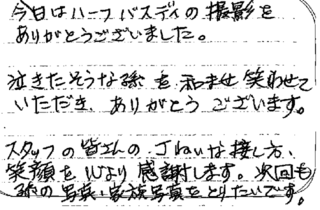 今日はハーフバスデイの撮影を
ありがとうございました。
泣きたそうな孫を和ませ笑わせて
いただき、ありがとうございます。
スタッフの皆さんの、ていねいな接し方、
笑顔を心より感謝します。次回も
孫の写真・家族写真をとりたいです。